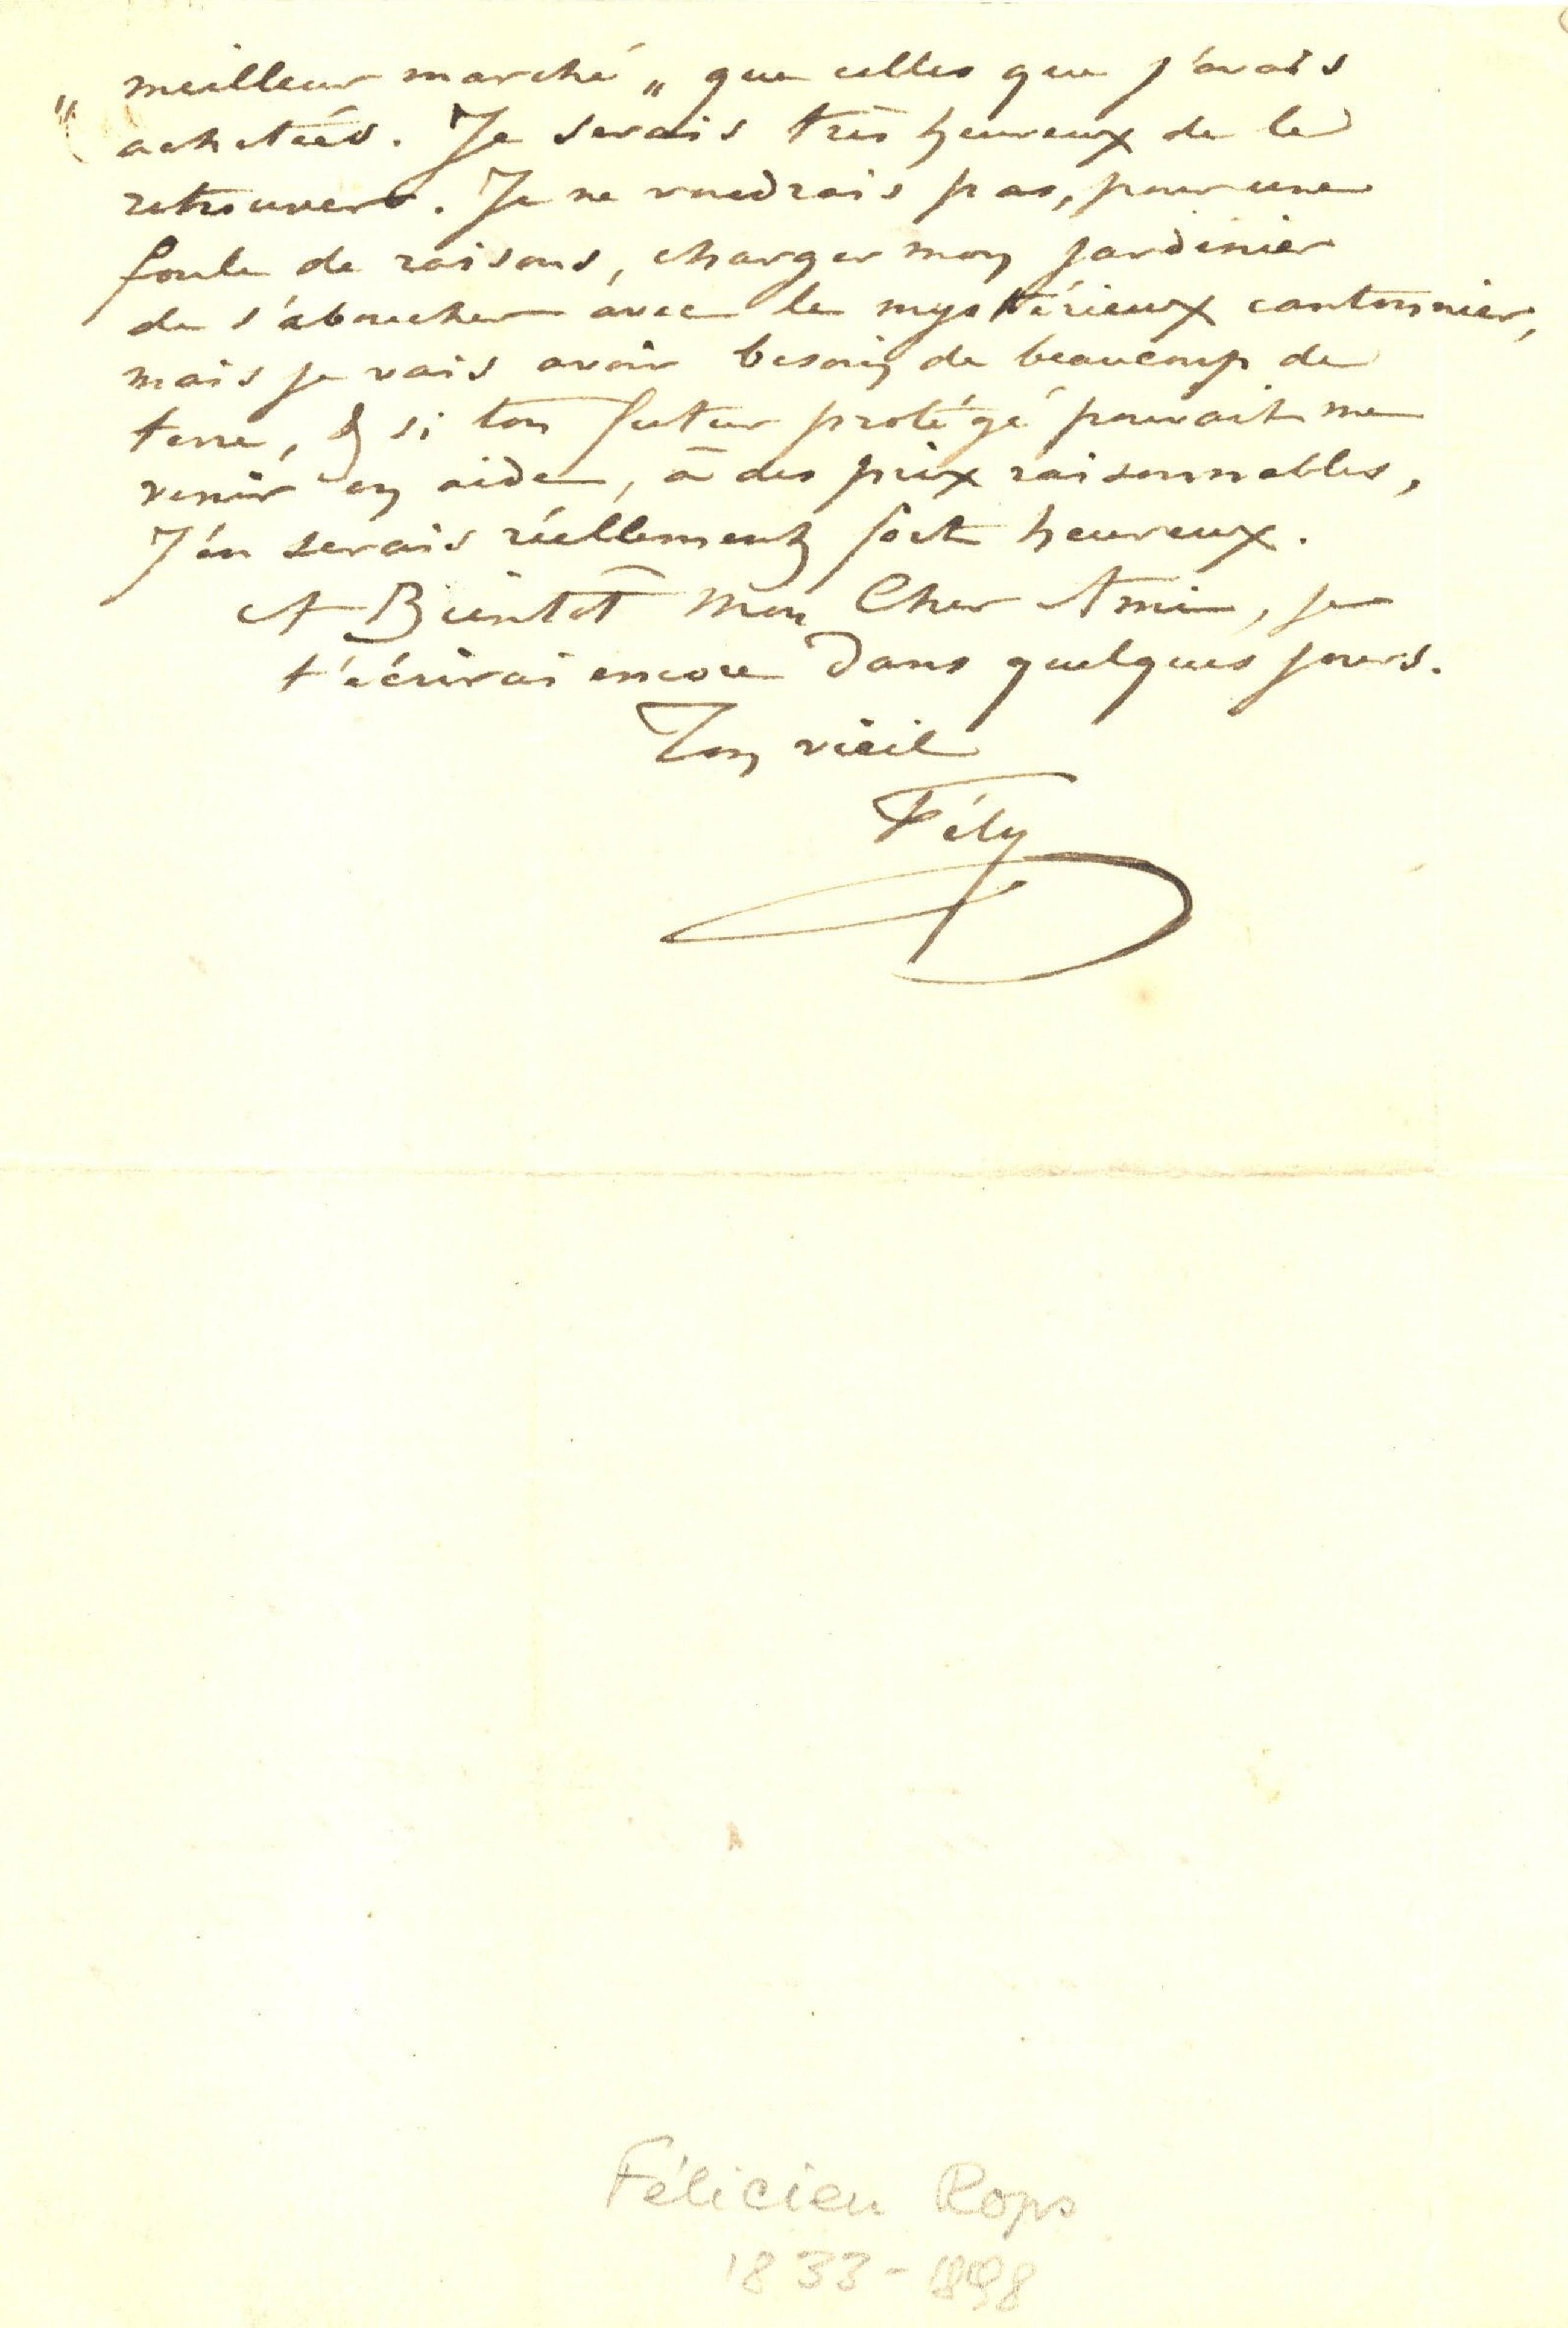 " meilleur marché „ que celles que j'avais
achetées. Je serais très heureux de le
retrouver. Je ne voudrais pas, pour une
foule de raisons, charger mon jardinier
de s'aboucher avec le mystérieux cantonnier,
mais je vais avoir besoin de beaucoup de
terre, & si ton futur protégé pouvait me
venir en aide, à des prix raisonnables,
J'en serais réellement fort heureux.
A Bientôt Mon Cher Ami, je
t'écrirai encore dans quelques jours.
Ton vieil
Fély
Félicien Rops
1833-1898